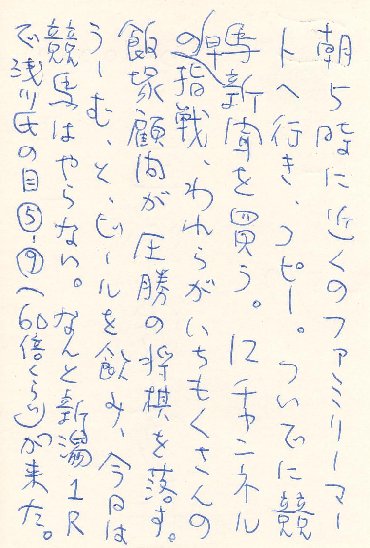 朝5時に近くのファミリーマー
トへ行き、コピー。ついでに競
馬新聞を買う。12チャンネル
の早指戦、われらがいちもくさんの
飯塚顧問が圧勝の将棋を落す。
うーむ、と、ビールを飲み、今日は
競馬はやらない。なんと新潟1R
で浅川氏の目⑤-⑨(60倍くらい)が来た。